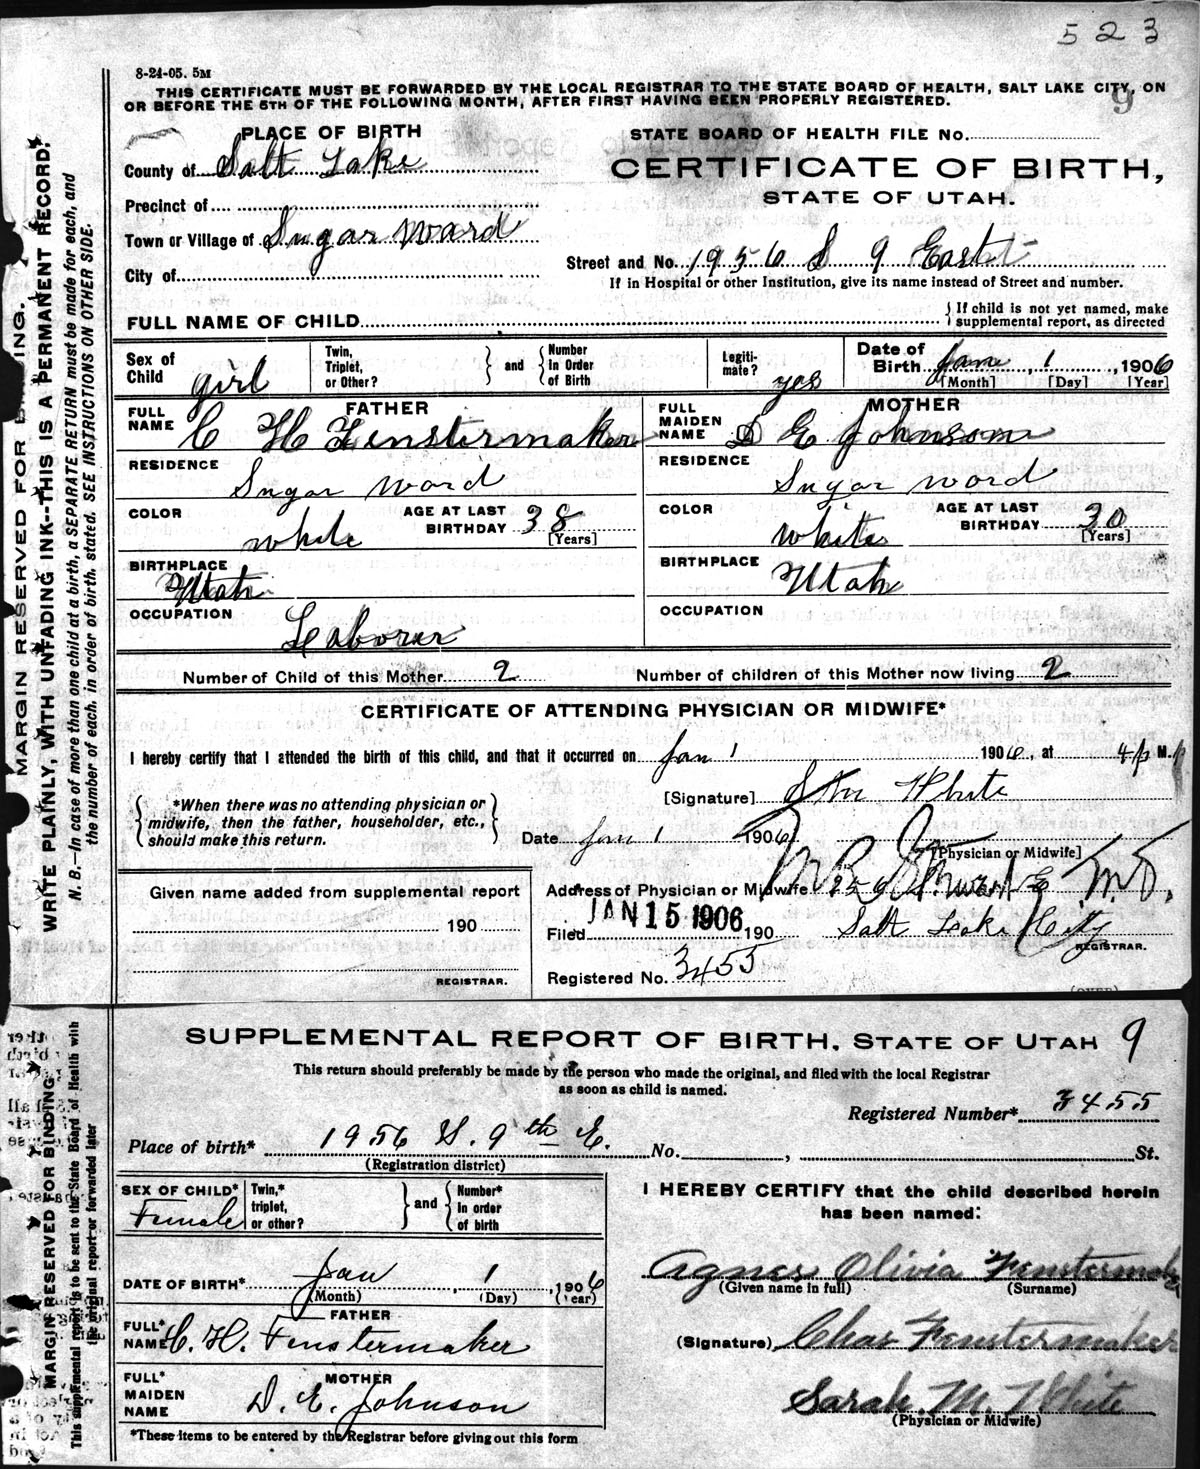 523
8-24-05. 5M
THIS CERTIFICATE MUST BE FORWARDED BY THE LOCAL REGISTRAR TO THE STATE BOARD OF HEALTH, SALT LAKE CITY, ON
OR BEFORE THE 5TH OF THE FOLLOWING MONTH, AFTER FIRST HAVING BEEN PROPERLY REGISTERED.
9
PLACE OF BIRTH
STATE BOARD OF HEALTH FILE No.
County of Salt Lake
CERTIFICATE OF BIRTH,
STATE OF UTAH.
Precinct of
Town or Village of Sugar Ward
City of
Street and No. 1956 S 9 East
If in Hospital or other Institution, give its name instead of Street and number.
FULL NAME OF CHILD
{If child is not yet named, make
supplemental report, as directed
Sex of Child girl
Twin, Triplet, or Other?
and
Number in Order of Birth
Legiti-mate? yes
Date of Birth Jan 1, 1906
[Month] [Day] [Year]
FATHER
FULL NAME C H Fenstermaker
MOTHER
FULL MAIDEN NAME D E Johnson
RESIDENCE Sugar Ward
RESIDENCE Sugar Ward
COLOR white
AGE AT LAST BIRTHDAY 38 [Years]
COLOR White
AGE AT LAST BIRTHDAY 30 [Years]
BIRTHPLACE Utah
BIRTHPLACE Utah
OCCUPATION Laborer
OCCUPATION
Number of Child of this Mother 2
Number of children of this Mother now living 2
CERTIFICATE OF ATTENDING PHYSICIAN OR MIDWIFE*
I hereby certify that I attended the birth of this child, and that it occurred on Jan 1 1906, at 4 P M.
*When there was no attending physician or
midwife, then the father, householder, etc.,
should make this return.
[Signature] White
Date Jan 1 1906
[Physician or Midwife]
Given name added from supplemental report
190
REGISTRAR.
Address of Physician or Midwife
Salt Lake City
M.D.
Filed JAN 15 1906 190
REGISTRAR.
Registered No. 3455
(OVER)
MARGIN RESERVED FOR BINDING.
WRITE PLAINLY, WITH UNFADING INK--THIS IS A PERMANENT RECORD.
N. B.—In case of more than one child at a birth, a SEPARATE RETURN must be made for each, and
the number of each, in order of birth, stated. SEE INSTRUCTIONS ON OTHER SIDE.
SUPPLEMENTAL REPORT OF BIRTH, STATE OF UTAH 9
This return should preferably be made by the person who made the original, and filed with the local Registrar
as soon as child is named.
Registered Number* 3455
Place of birth* 1956 S. 9th E. No. , St.
(Registration district)
SEX OF CHILD* Female
Twin,* triplet, or other?
and
Number* in order of birth
I HEREBY CERTIFY that the child described herein
has been named:
DATE OF BIRTH* Jan 1, 1906
(Month) (Day) (Year)
Agnes Olivia Fenstermaker
(Given name in full) (Surname)
FATHER
FULL* NAME C. H. Fenstermaker
(Signature) Chas Fenstermaker
MOTHER
FULL* MAIDEN NAME D. E. Johnson
Sarah M. White
(Physician or Midwife)
*These items to be entered by the Registrar before giving out this form
MARGIN RESERVED FOR BINDING
This supplemental report is to be sent to the State Board of Health with
the original report or forwarded later